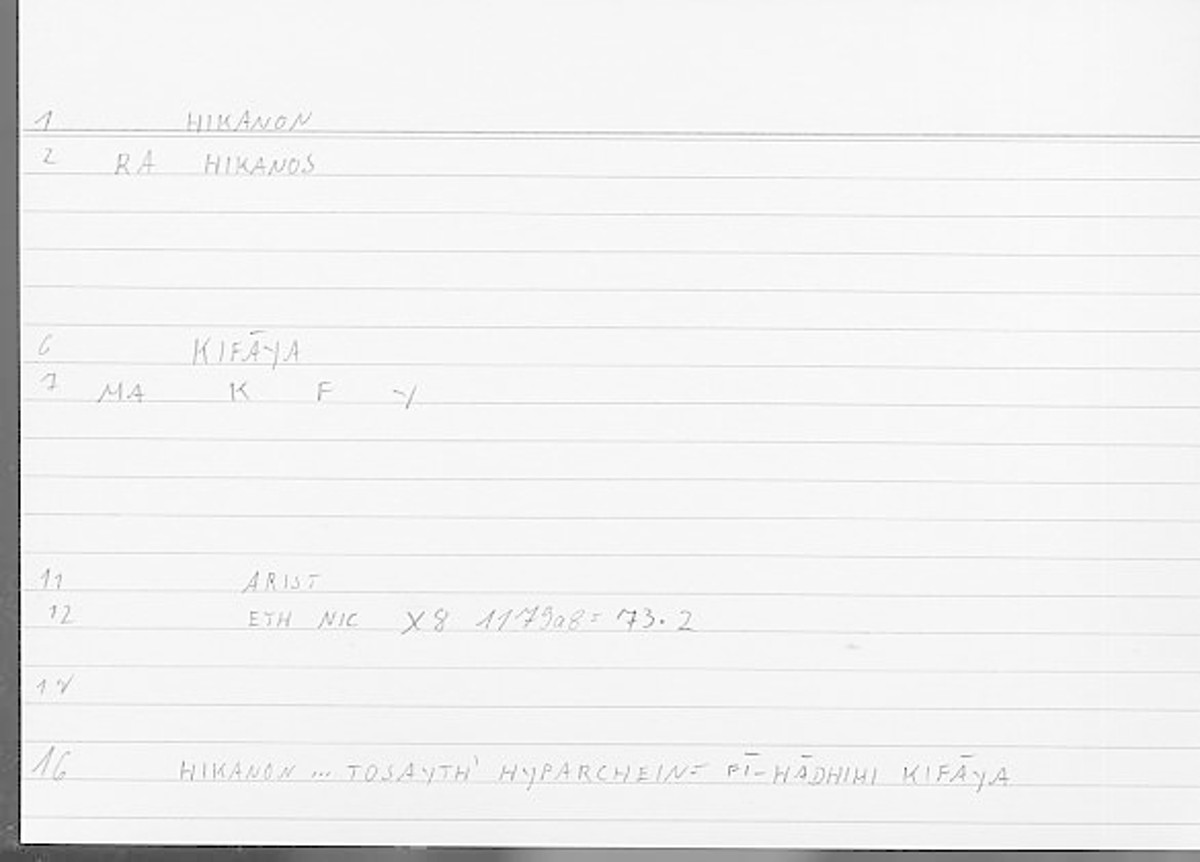 1 HIKANON
2 RA HIKANOS
6 KIFĀYA
7 MA K F Y
11 ARIST
12 ETH NIC X8 1179a8= 73.2
16 HIKANON ... TOSAYTH' HYPARCHEIN= FĪ-HĀDHIHI KIFĀYA